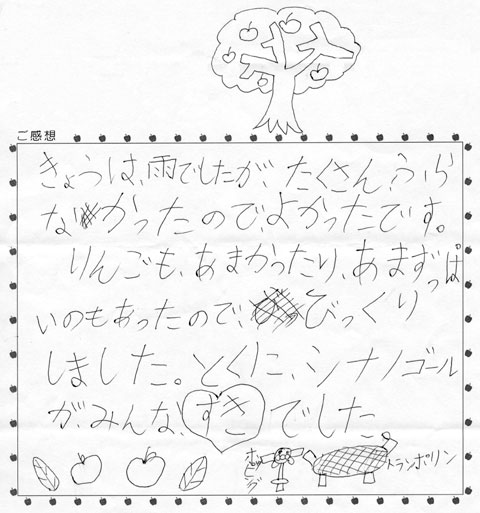 ご感想
きょうは、雨でしたが、たくさん、ふら
なかったので、よかったです。
りんごも、あまかったり、あまずっぱ
いのもあったので、びっくり
しました。とくに、シナノゴール
が、みんな、すきでした
トランポリン